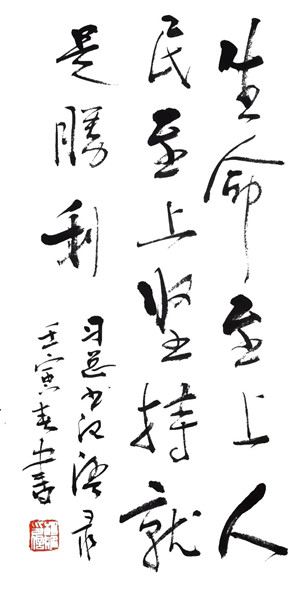 生命至上人
民至上坚持就
是勝利
习总书记语录
壬寅春中香書